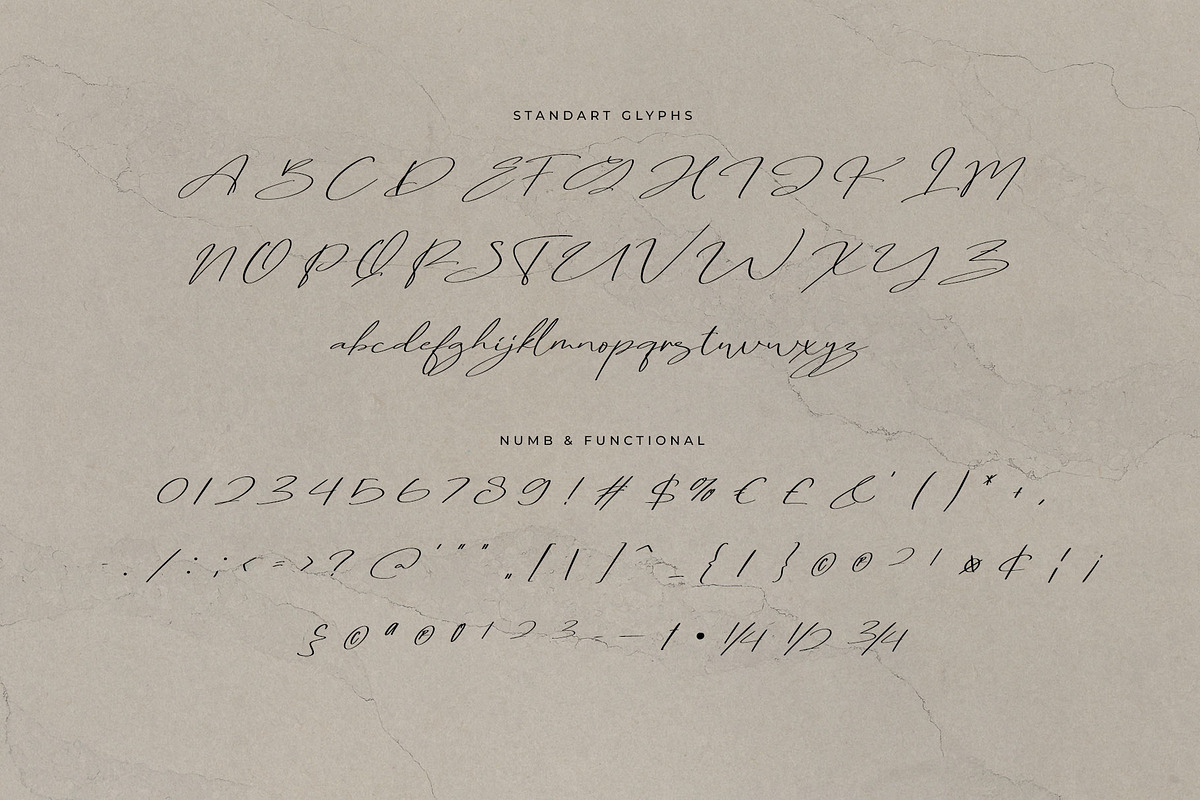 STANDART GLYPHS
A B C D E F G H I J K L M
N O P Q R S T U V W X Y Z
abcdefghijklmnopqrstuvwxyz
NUMB & FUNCTIONAL
0 1 2 3 4 5 6 7 8 9 ! # $ % € £ & ' ( ) * + ,
- . / : ; < = > ? @ ' " " „ [ | ] ^ _ { | } © ® ¤ ¢ ¦ ¡
§ © ª ® 0 1 2 3 – • 1/4 1/2 3/4